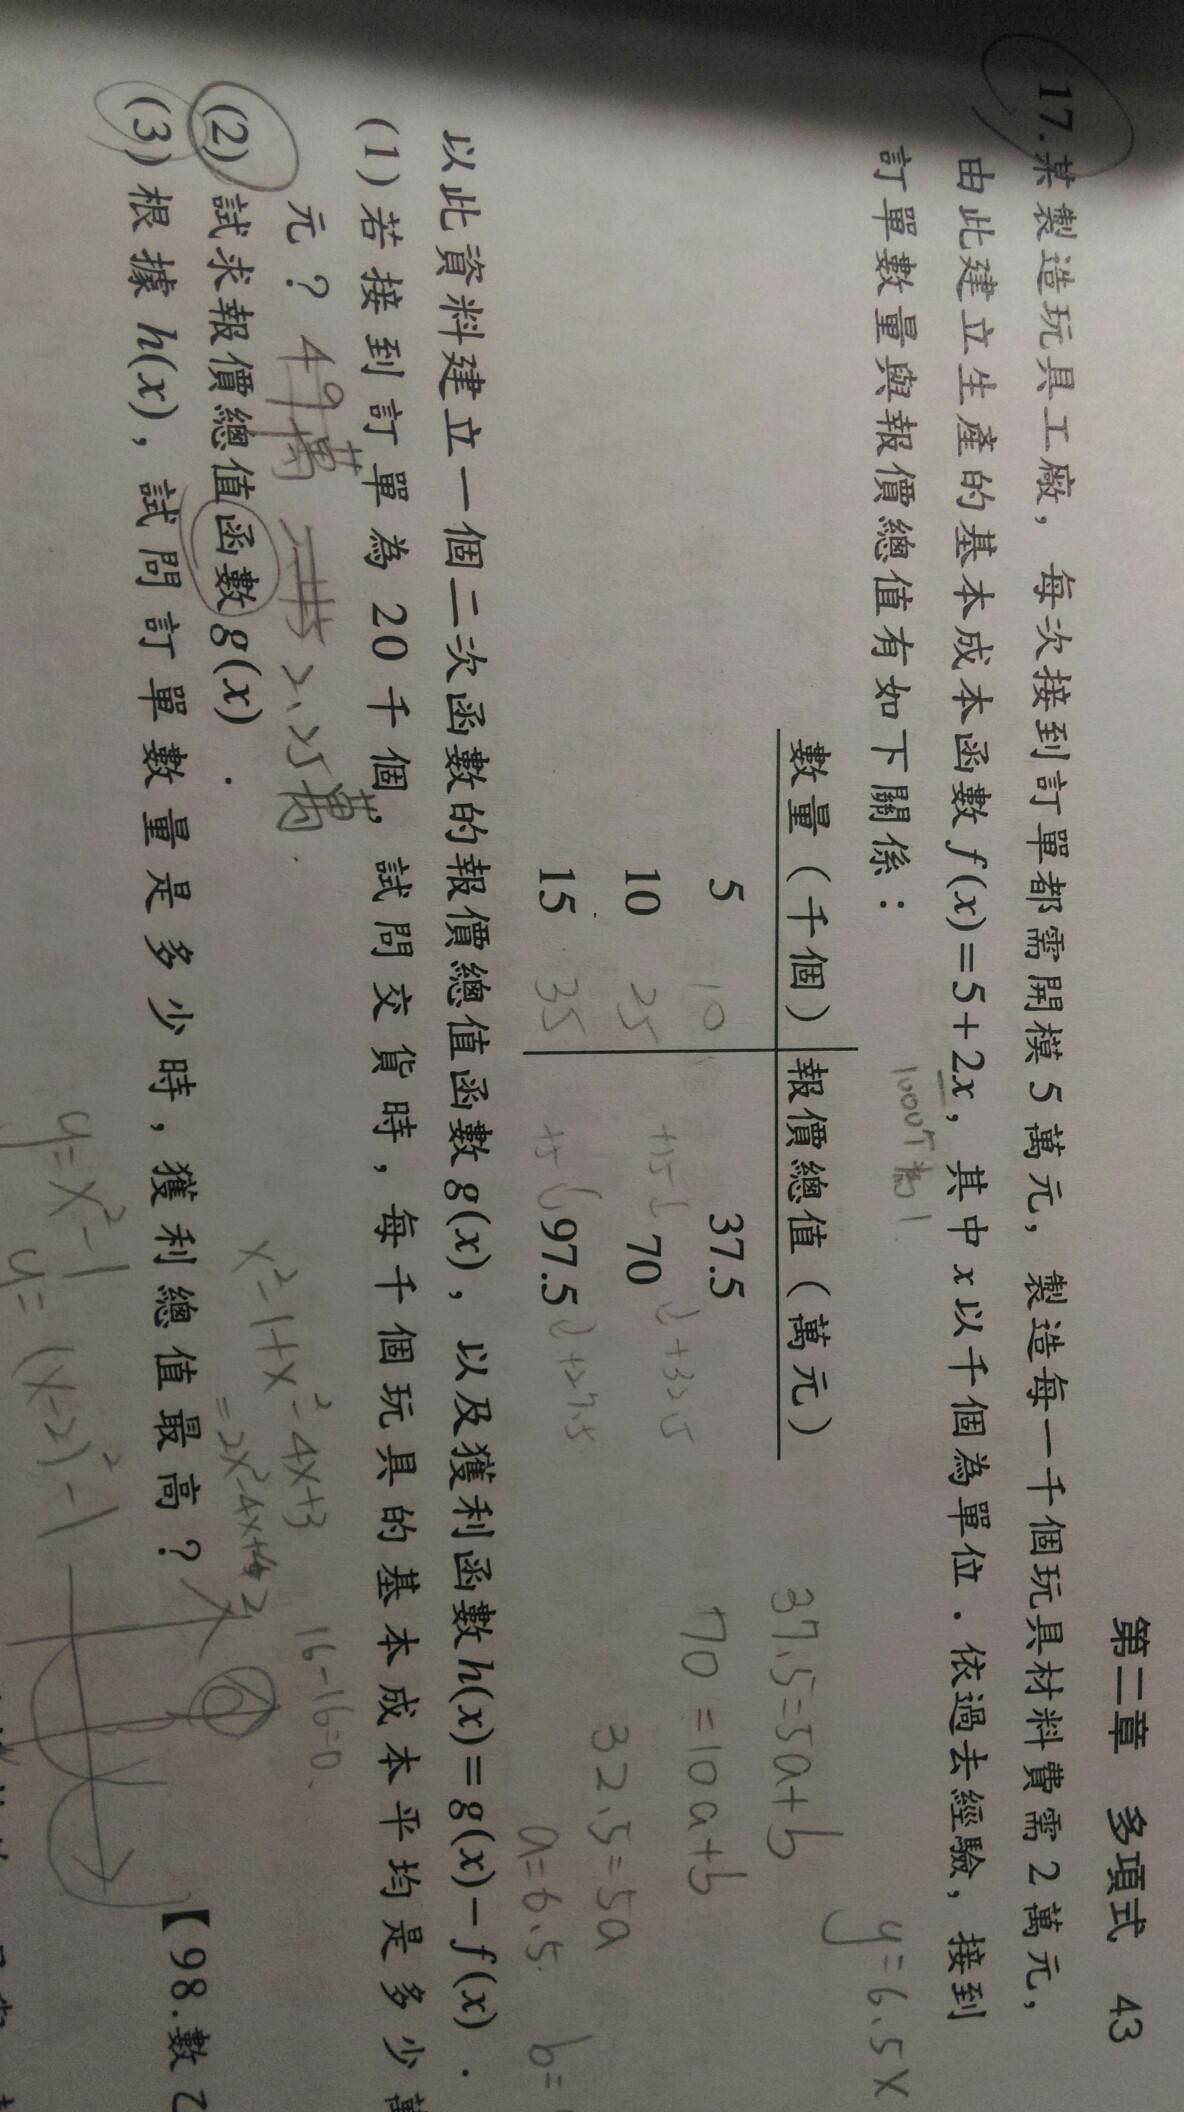 第二章 多項式 43
17.某製造玩具工廠，每次接到訂單都需開模5萬元，製造每一千個玩具材料費需2萬元，
由此建立生產的基本成本函數f(x)=5+2x，其中x以千個為單位．依過去經驗，接到
1000个為1
訂單數量與報價總值有如下關係：
y=6.5x
數量（千個） 報價總值（萬元）
37.5=5a+b
5 10 37.5
70=10a+b
+32.5
10 25 70
32.5=5a
15 35 97.5 +27.5
a=6.5 b=
以此資料建立一個二次函數的報價總值函數g(x)，以及獲利函數h(x)=g(x)−f(x)．
(1)若接到訂單為20千個，試問交貨時，每千個玩具的基本成本平均是多少萬
元？ 2.25萬
16-16=0
x²-1+x²-4x+3
(2)試求報價總值函數g(x)．
(3)根據h(x)，試問訂單數量是多少時，獲利總值最高？
【98.數乙
y=x²-1
y=(x-2)²-1